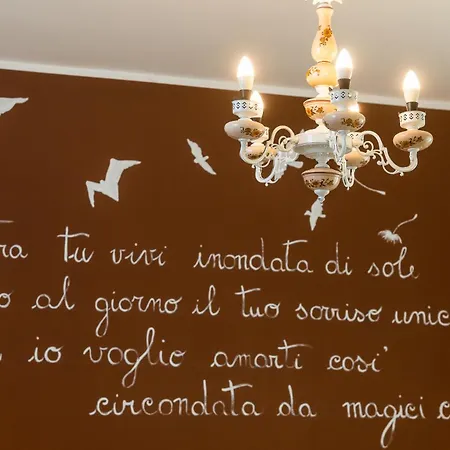 ra tu vivi inondata di sole
o al giorno il tuo sorriso unic
io voglio amarti così
circondata da magici c